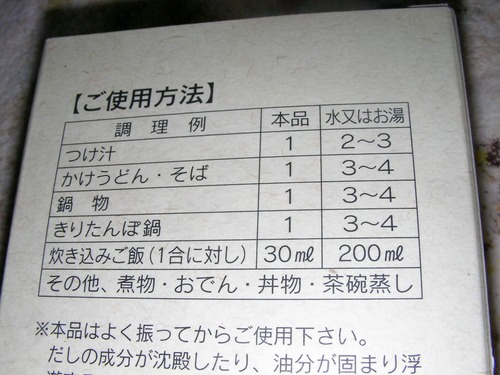 【ご使用方法】
調理例 本品 水又はお湯
つけ汁 1 2〜3
かけうどん・そば 1 3〜4
鍋物 1 3〜4
きりたんぽ鍋 1 3〜4
炊き込みご飯(1合に対し) 30㎖ 200㎖
その他、煮物・おでん・丼物・茶碗蒸し
※本品はよく振ってからご使用下さい。
だしの成分が沈殿したり、油分が固まり浮